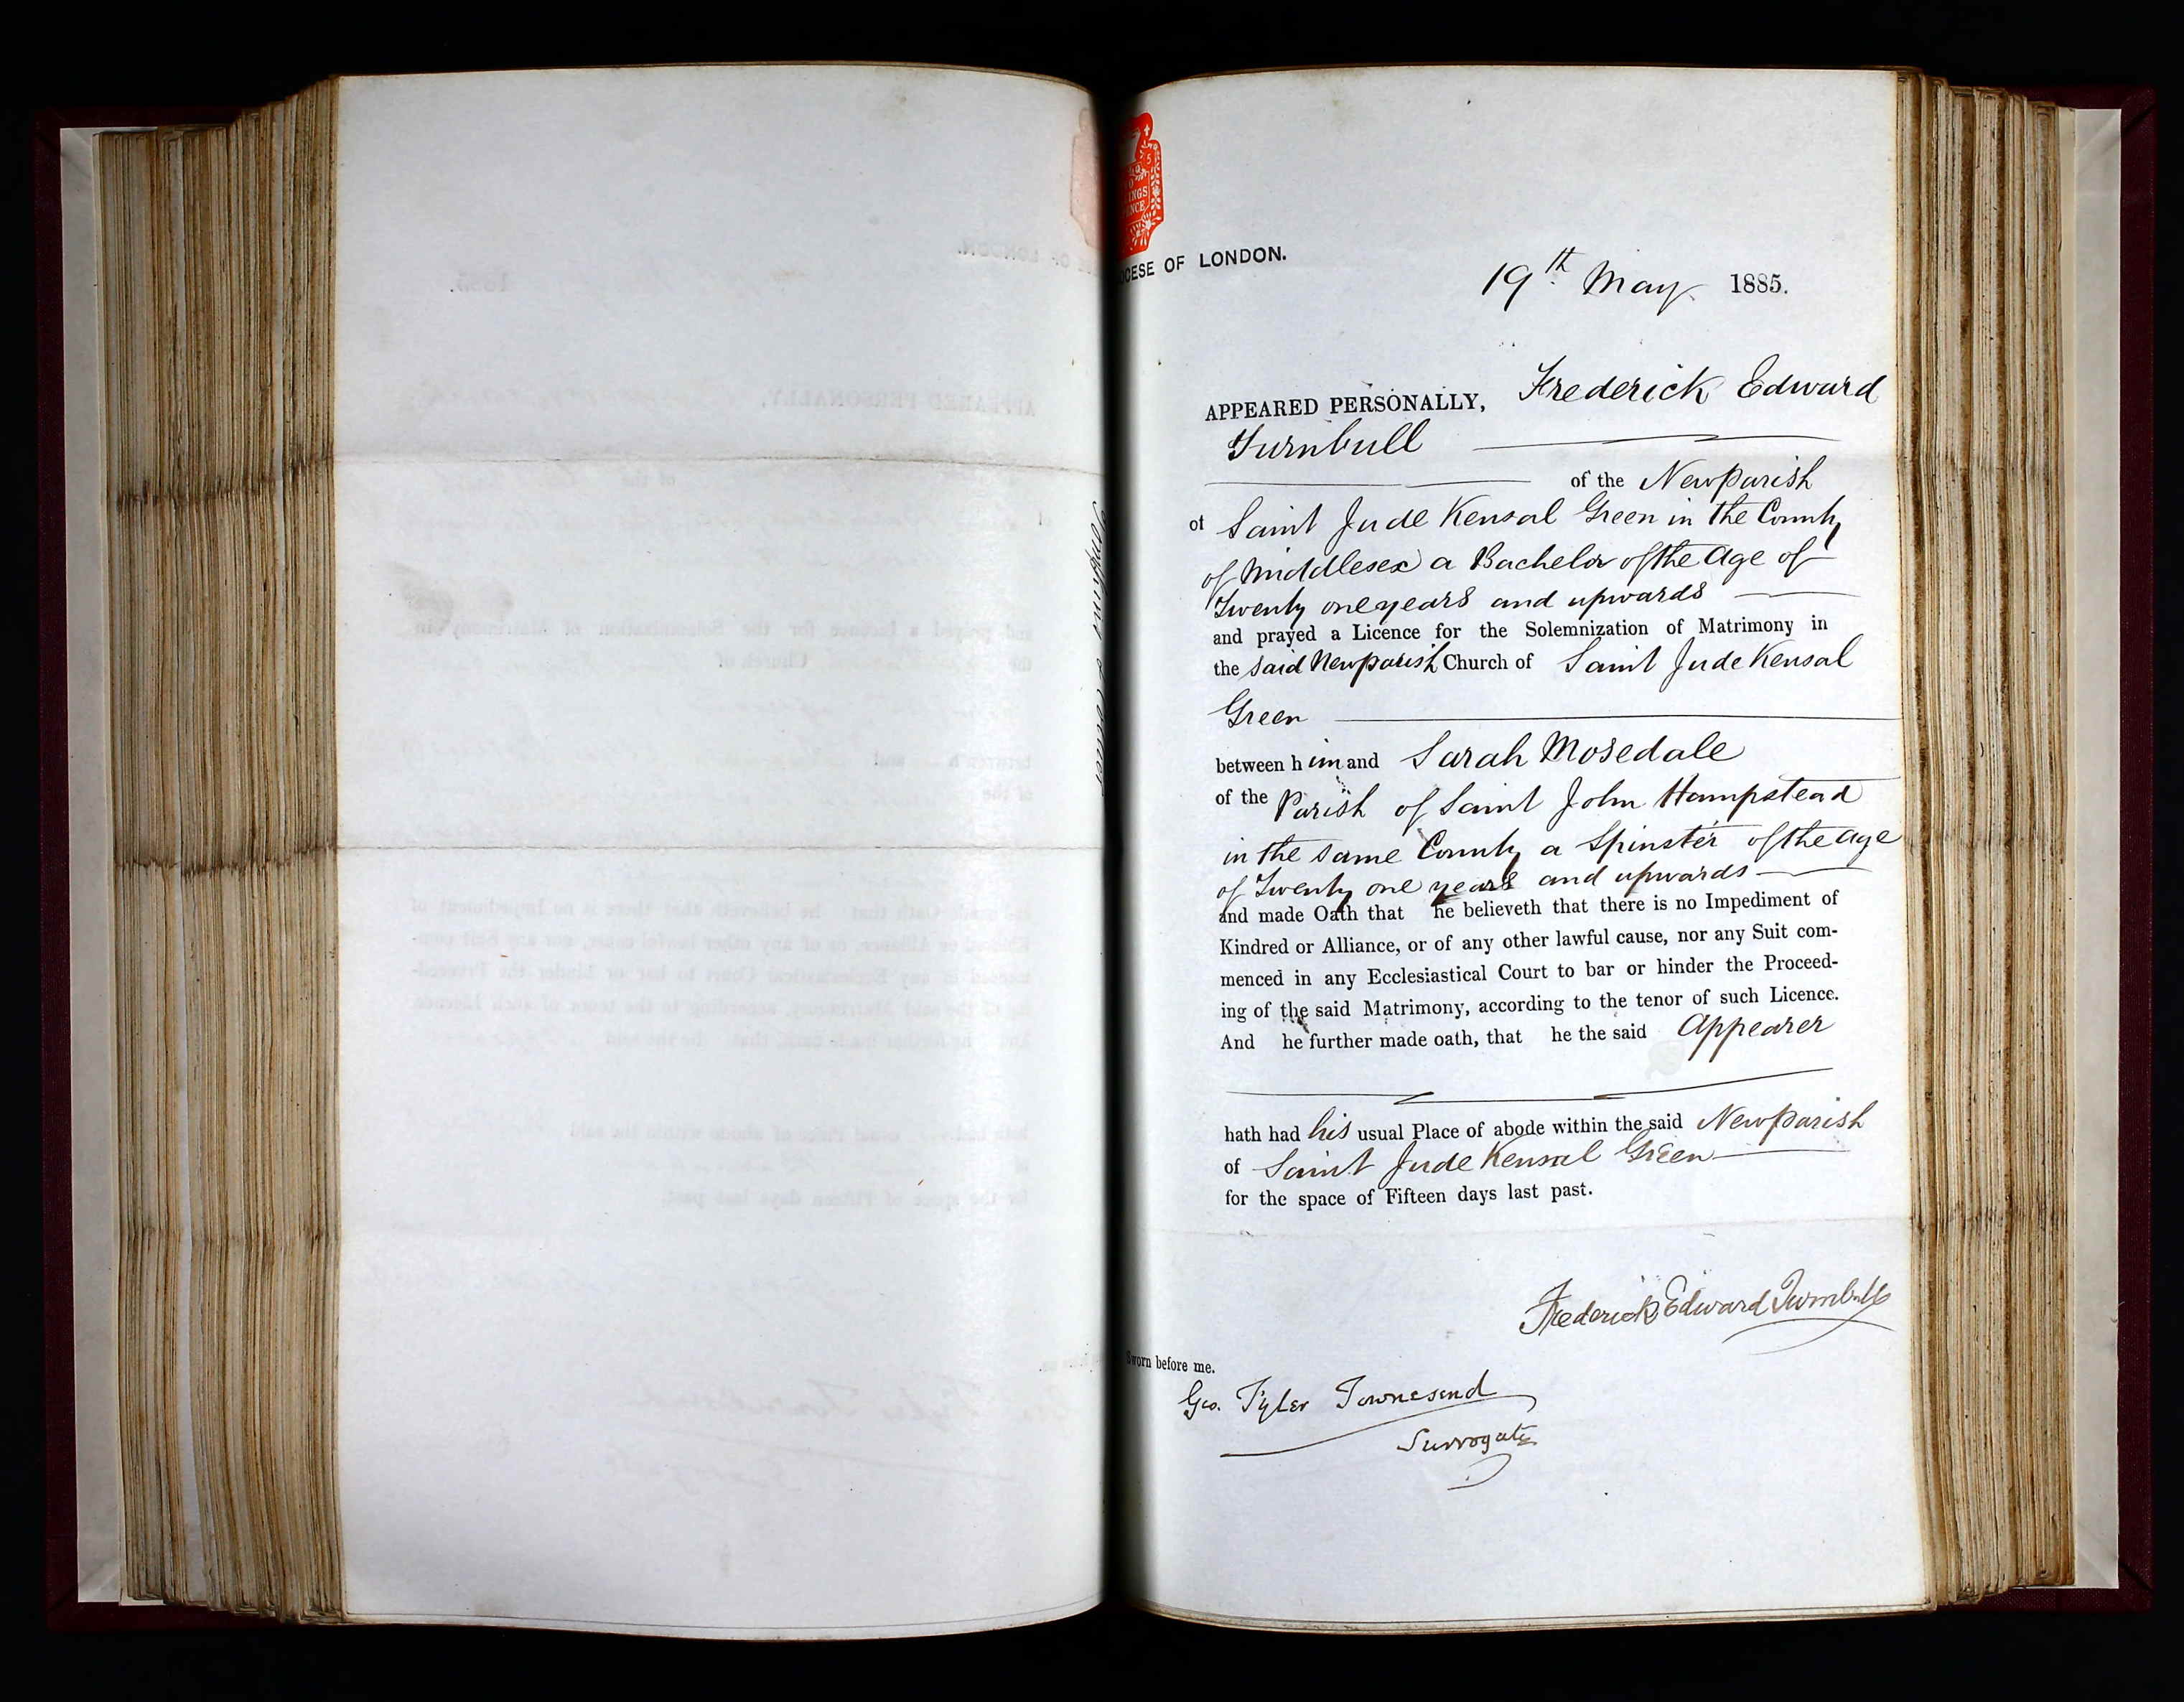 OCESE OF LONDON.
19th May 1885.
APPEARED PERSONALLY, Frederick Edward
Turnbull
of the New Parish
of Saint Jude Kensal Green in the County
of Middlesex a Bachelor of the Age of
Twenty one years and upwards
and prayed a Licence for the Solemnization of Matrimony in
the said New parish Church of Saint Jude Kensal
Green
between him and Sarah Mosedale
of the Parish of Saint John Hampstead
in the same County a Spinster of the age
of Twenty one years and upwards
and made Oath that he believeth that there is no Impediment of
Kindred or Alliance, or of any other lawful cause, nor any Suit com-
menced in any Ecclesiastical Court to bar or hinder the Proceed-
ing of the said Matrimony, according to the tenor of such Licence.
And he further made oath, that he the said Appearer
hath had his usual Place of abode within the said New parish
of Saint Jude Kensal Green
for the space of Fifteen days last past.
Frederick Edward Turnbull
Sworn before me.
Geo. Tyler Townesend
Surrogate